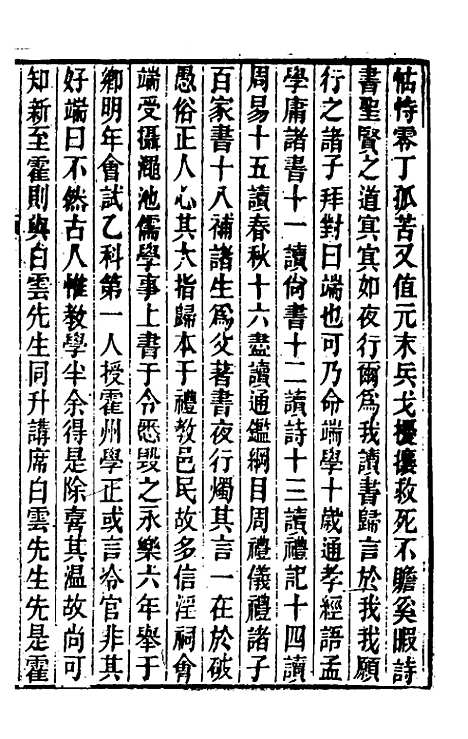 怙恃零丁孤苦又值元末兵戈擾攘救死不贍奚暇詩
書聖賢之道冥冥如夜行爾為我讀書歸言於我我願
行之諸子拜對曰端也可乃命端學十歲通孝經語孟
學庸諸書十一讀尙書十二讀詩十三讀禮記十四讀
周易十五讀春秋十六盡讀通鑑綱目周禮儀禮諸子
百家書十八補諸生為父著書夜行燭其言一在於破
愚俗正人心其大指歸本于禮教邑民故多信淫祠會
端受攝澠池儒學事上書于令悉毀之永樂六年舉于
鄉明年會試乙科第一人授霍州學正或言冷官非其
好端曰不然古人惟教學半余得是除喜其温故尚可
知新至霍則與白雲先生同升講席白雲先生先是霍